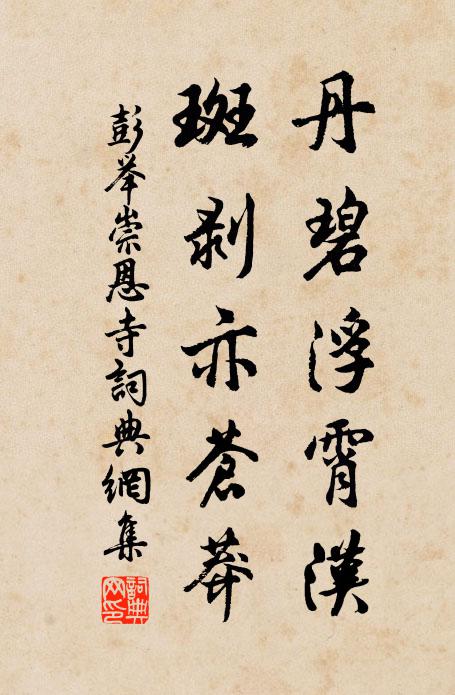 丹碧浮霄漢
斑剥亦蒼莽
彭举崇恩寺詞典網集
詞典網印